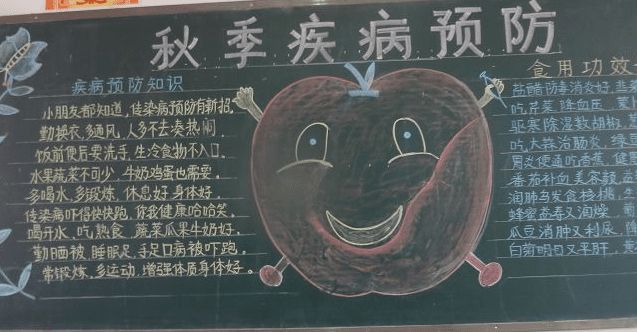 秋季疾病预防
疾病预防知识
小朋友都知道，传染病预防有新招。
勤换衣，多通风，人多不去凑热闹
饭前便后要洗手，生冷食物不入口，
水果蔬菜不可少，牛奶鸡蛋也需要。
多喝水，多锻炼，休息好身体好。
传染病吓得快快跑，你我健康哈哈笑。
喝开水，吃熟食，蔬菜瓜果牛奶好。
勤晒被，睡眠足，手足口病被吓跑。
常锻炼，多运动，增强体质身体好。
食用功效
盐醋防毒消炎好，韭
吃芹菜降血压，
驱寒除湿数胡椒，
吃大蒜治肠炎，绿
男炎便通吃香蕉，健
番茄补血美容颜，
润肺乌发食核桃，生
蜂蜜益寿又润燥，
瓜豆消肿又利尿，
白菊明目又平肝，